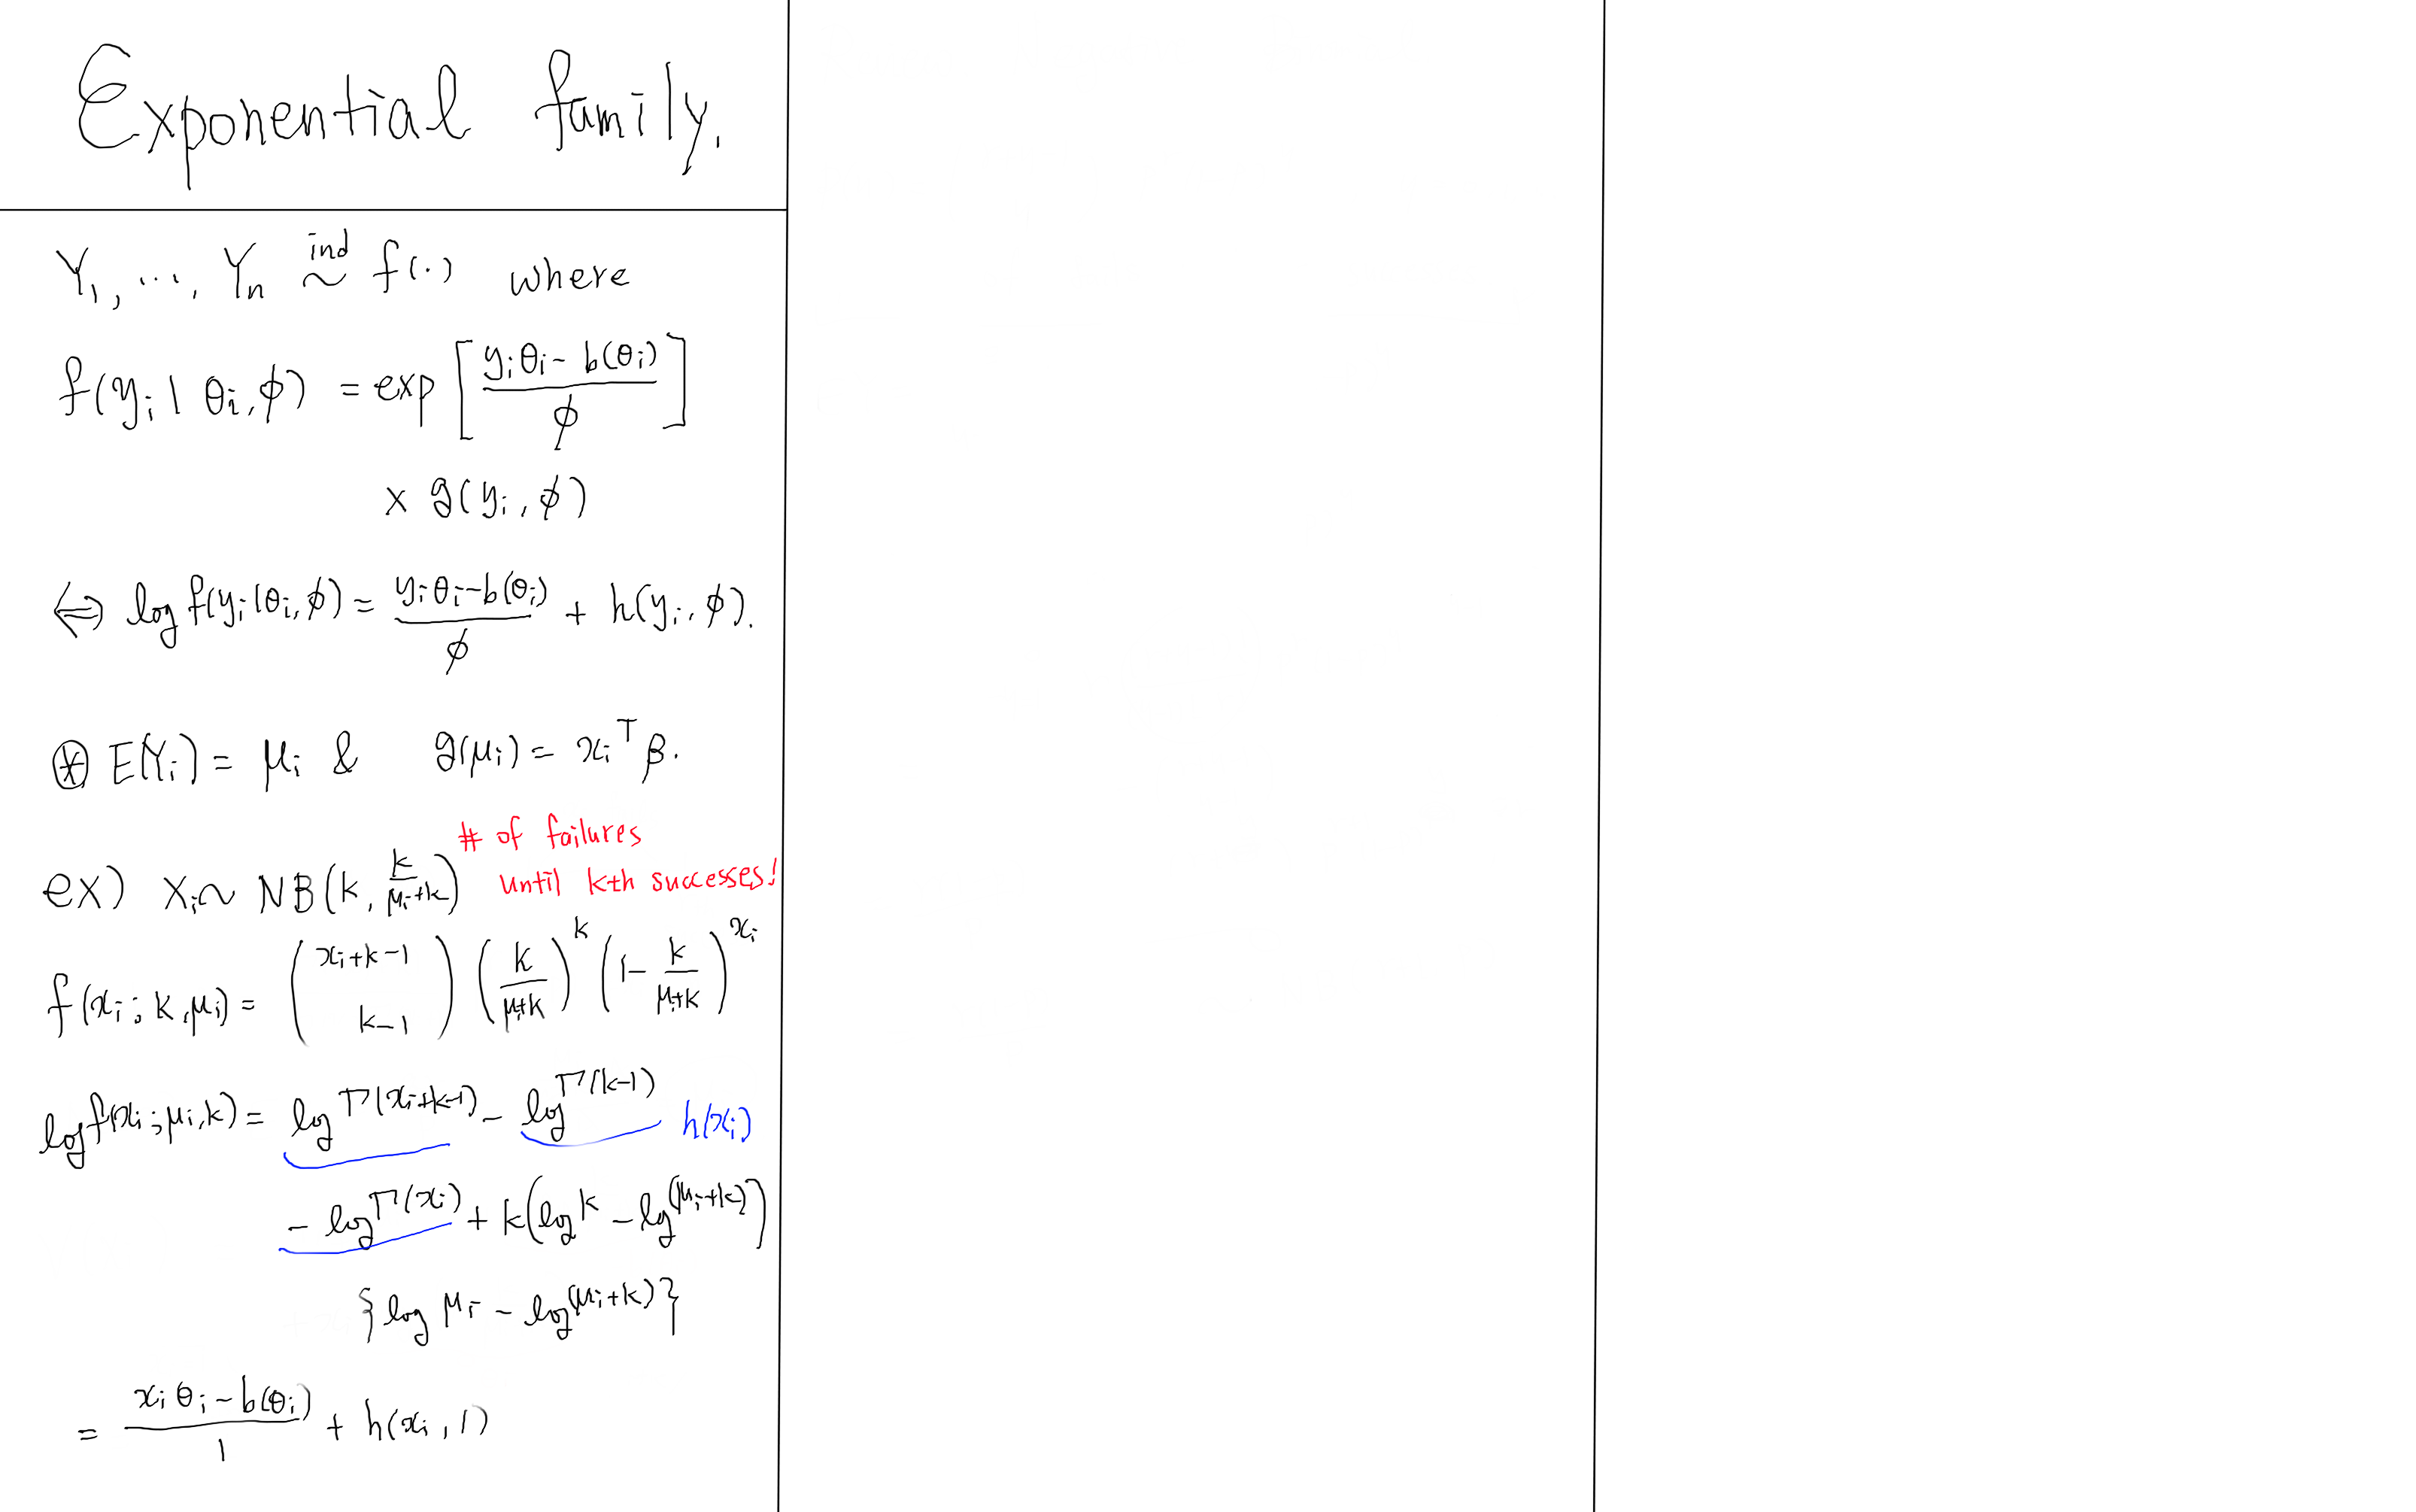 Exponential family.
Y₁, ⋯, Yₙ ~ind f(·) where
f(yᵢ | θᵢ, ϕ) = exp [ (yᵢθᵢ − b(θᵢ)) / ϕ ]
× g(yᵢ, ϕ)
⇔ log f(yᵢ|θᵢ, ϕ) = (yᵢθᵢ − b(θᵢ)) / ϕ + h(yᵢ, ϕ).
⊛ E(Yᵢ) = μᵢ & g(μᵢ) = xᵢᵀ β.
# of failures
ex) Xᵢ ~ NB(k, k/(μᵢ+k)) until kth successes!
f(xᵢ ; k, μᵢ) = (xᵢ+k−1 k−1) (k/(μᵢ+k))^k (1 − k/(μᵢ+k))^xᵢ
log f(xᵢ ; μᵢ, k) = log Γ(xᵢ+k−1) − log Γ(k−1) h(xᵢ)
− log Γ(xᵢ) + k(log k − log(μᵢ+k))
{log μᵢ − log(μᵢ+k)}
= (xᵢθᵢ − b(θᵢ)) / 1 + h(xᵢ, 1)